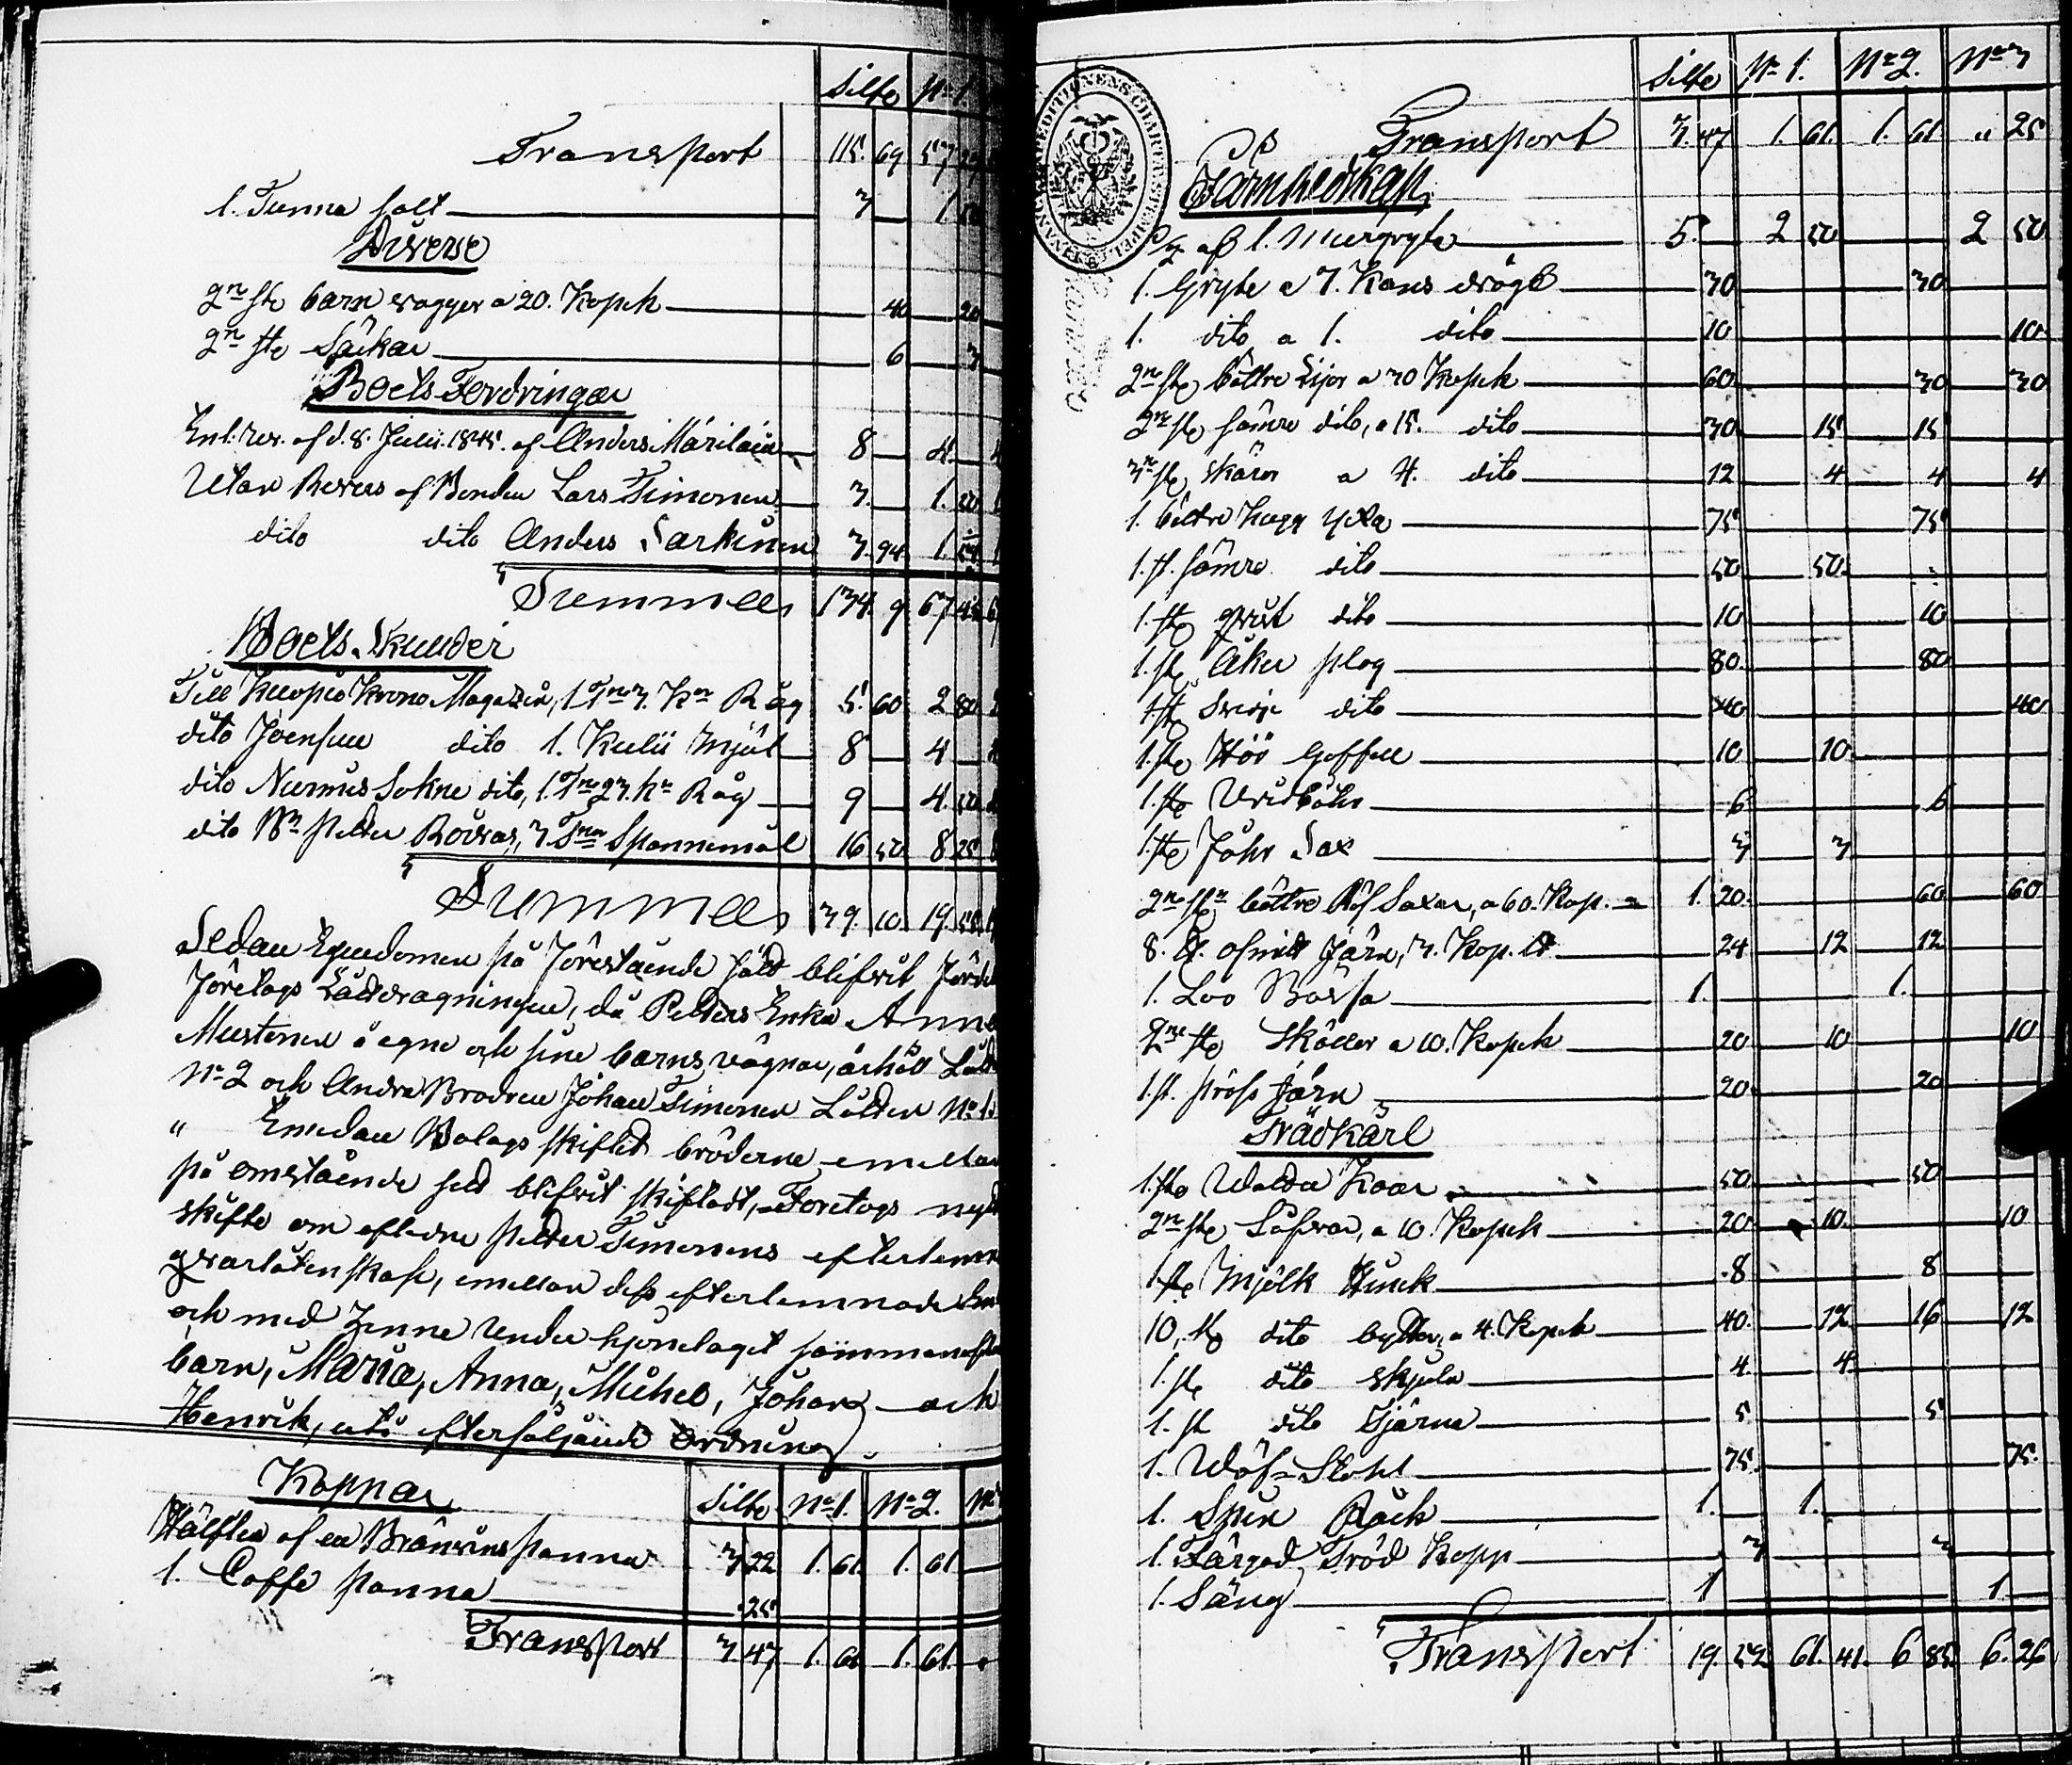 Silfr No 1.
Transport 115. 69 57
1. Tunna salt 3 1 50
Diverse
2ne ste barn vaggor a 20. Kopek 40 20
2ne ste Säckar 6 3
Boets Fordringar
Enl. rev. af d. 8. Julii 1845. af Anders Märiläin 8 4
Utan Revers af Bonden Lars Timonen 3. 1. 50
dito dito Anders Sarkinen 3. 94. 1.
Summa 134. 9. 67. 4
Boets Skulder
Till Kuopio Krono Magazin, 1 Tna 3. Kr Råg 5. 60 2 80
dito Joensuu dito 1. Kulii Mjöl 8 4
dito Nurmis Sokne dito, 1. Tna 23. Kr Råg 9 4. 50
dito Bn Petter Rovras, 3 Tnr Spannemål 16 50 8 25
Summa 39. 10. 19. 55
Sedan Egendomen på förestående sätt blifvit förde
företogs Låttdragningen, då Petters Enka Anna
Mustonen å egne och sine barns vägnar, ärhöll Lått
No 2 och Andra Brodren Johan Timonen Lotten No 1.
" Emedan Bolags skiftet bröderne emellan
på omstående sett blifvit skiftadt, Företogs nytt
skifte om aflidne Petter Timonens efterlemn
qvarlåtenskap, emellan dess efterlemnade En
och med Henne under hjonelaget sammanafla
barn, Maria, Anna, Michel, Johan och
Henrik, uti efterföljande Ordning.
Koppar Silfr No 1. No 2. No
Hälften af en Bränvins panna 3 22 1. 61. 1. 61
1. Caffe panna 25
Transport 3 47 1. 61 1. 61.
FINANCE EXPEDITIONENS CHARTÆ STEMPEL
Silfr No 1. No 2. No 3
Transport 3. 47 1. 61. 1. 61 " 25
Järnredskap
1/2 af 1. Murgryta 5. 2 50 2 50
1. Gryta a 3. Kans drägt 30 30
1. dito a 1. dito 10 10
2ne ste bättre Lijor a 30 Kopek 60 30 30
2ne ste sämre dito, a 15. dito 30 15 15
3ne ste Skäror a 4. dito 12 4 4 4
1. bättre hugg Yxa 75 75
1. st. sämre dito 50 50
1. ste dito 10 10
1. ste Åker plog 80 80
1 ste Svidje dito 40 40
1. ste Hö Gaffell 10 10
1. ste 6 6
1. ste Fåhr Sax 3 3
2ne ste bättre Räf Saxar, a 60. Kop. 1. 20 60 60
8. osmidt Järn, 3. Kop. 24 12 12
1. Lod Bössa 1. 1.
2ne ste Skällor a 10. Kopek 20 10 10
1. st. Järn 20 20
Trädkärl
1. ste Kaar 50 50
2ne ste Såfvar, a 10. Kopek 20 10 10
1 ste Mjölk Hinck 8 8
10, ste dito byttor, a 4. Kopek 40 12 16 12
1. ste dito skjula 4 4
1. st dito Tjärna 5 5
1. Wäf=Stohl 75 75.
1. Spin Råck 1. 1.
1. Färgad Träd Kopp 3 3
1. Säng 1 1.
Transport 19. 52 61. 41. 6 85. 6. 26